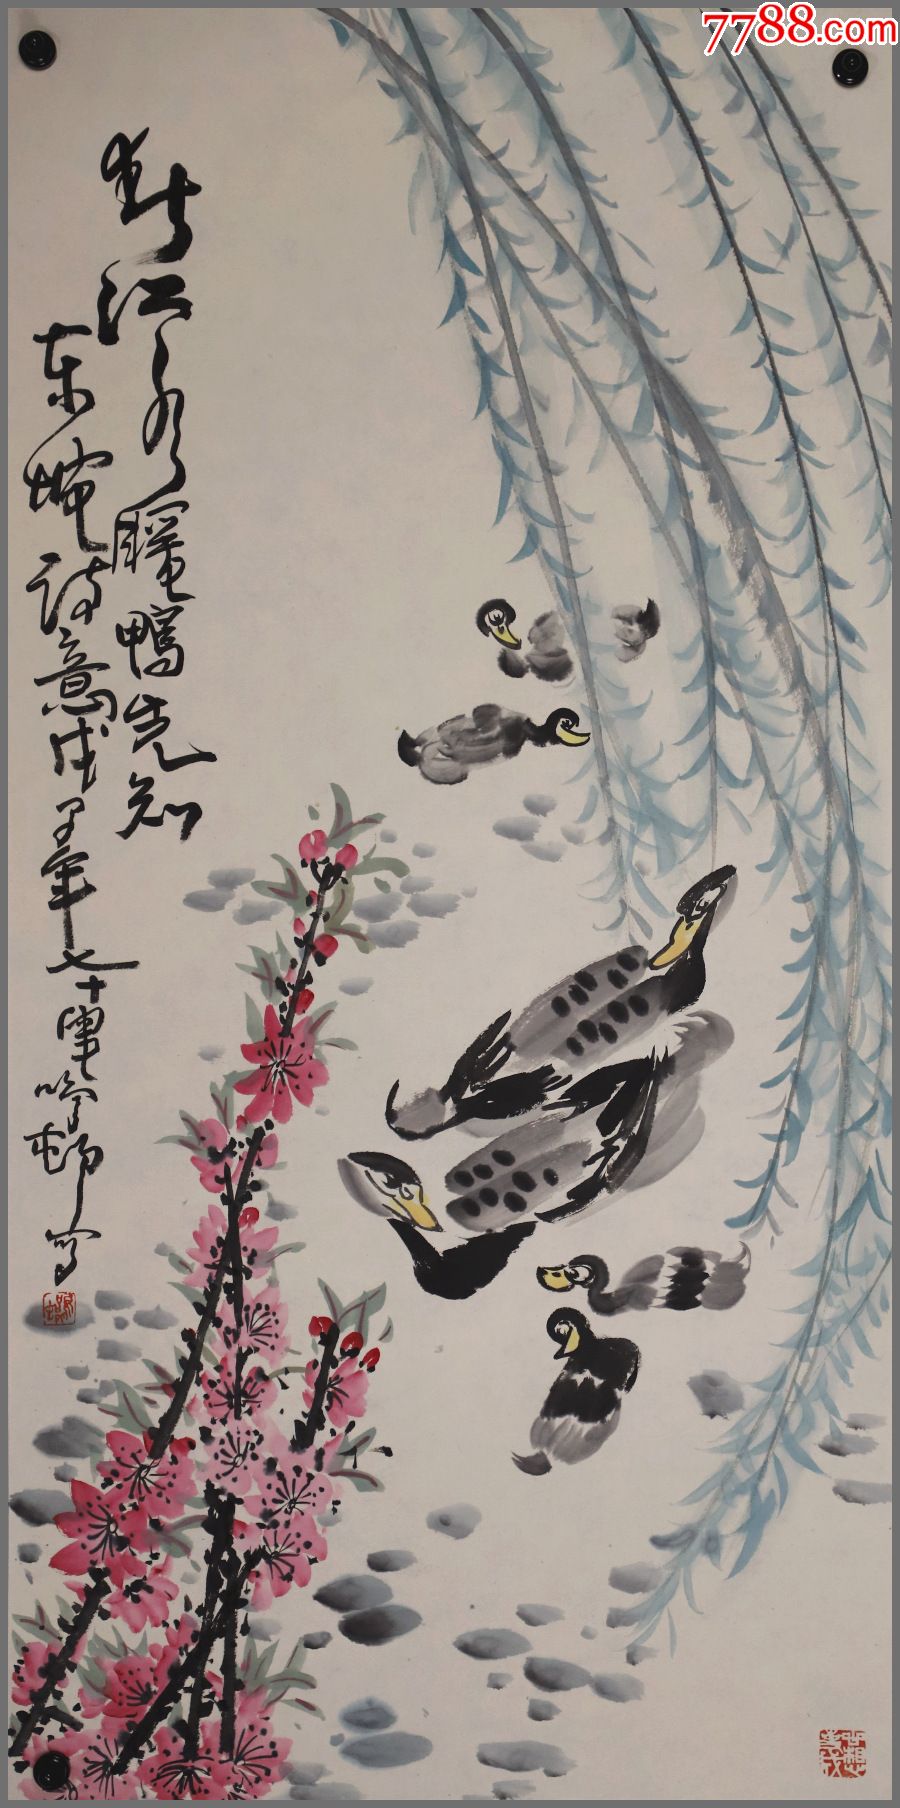 7788.com
春江水暖鸭先知
东坡诗意戊子年七十叟
写